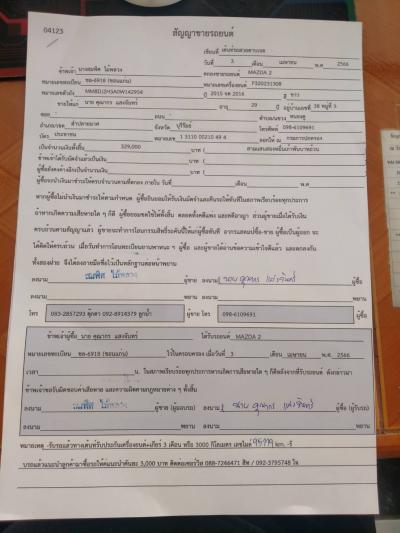 04123
สัญญาขายรถยนต์
เขียนที่ เต็นท์รถสวยซาวเวล
วันที่ 3 เดือน เมษายน พ.ศ. 2566
ข้าพเจ้า นางสมพิศ ไม้หลวง ตกลงขายรถยนต์ MAZDA 2
หมายเลขทะเบียน ขล-6918 (ขอนแก่น) หมายเลขเครื่องยนต์
หมายเลขตัวถัง ปี 2015 จด 2016 สี ขาว
ขายให้แก่ นาย คุณากร แสงจันทร์ อายุ 29 ปี อยู่บ้านเลขที่ 38 หมู่ที่ 3
ซอย ถนน ตำบล/แขวง
อำเภอ/เขต ลำปลายมาศ จังหวัด บุรีรัมย์ โทรศัพท์ 098-6109691
บัตร ประชาชน หมายเลข 1 3110 00210 49 4 ออกให้ ณ กรมการปกครอง
เป็นจำนวนเงินทั้งสิ้น 329,000 บาท ( สามแสนสองหมื่นเก้าพันบาทถ้วน
ข้าพเจ้าได้รับมัดจำแล้วเป็นเงิน บาท (
ผู้ซื้อยังคงค้างอีกเป็นจำนวนเงิน บาท (
ผู้ซื้อจะนำเงินมาชำระให้ครบจำนวนตามที่ตกลง ภายใน วันที่ เดือน พ.ศ.
หากผู้ซื้อไม่นำเงินมาชำระให้ตามกำหนด ผู้ซื้อยินยอมให้ริบเงินมัดจำและคืนรถให้ทันทีในสภาพเรียบร้อยทุกประการ
ถ้าหากเกิดความเสียหายใด ๆ ก็ดี ผู้ซื้อยอมชดใช้ให้ทั้งสิ้น ตลอดทั้งคดีแพ่ง และคดีอาญา ส่วนผู้ขายเมื่อได้รับเงิน
ครบถ้วนตามสัญญาแล้ว ผู้ขายจะทำการโอนกรรมสิทธิ์
ทั้งสองฝ่าย จึงได้ลงลายมือชื่อไว้เป็นหลักฐานต่อหน้าพยาน
ลงนาม สมพิศ ไม้หลวง ผู้ขาย ลงนาม นาย คุณากร แสงจันทร์ ผู้ซื้อ
ลงนาม พยาน ลงนาม พยาน
โทร 083-2857293 092-8914379 ผู้ขาย โทร 098-6109691 ผู้ซื้อ
ข้าพเจ้าผู้ซื้อ นาย คุณากร แสงจันทร์ ได้รับรถยนต์ MAZDA 2
หมายเลขทะเบียน ขล-6918 (ขอนแก่น) ไว้ในครอบครอง เมื่อวันที่ 3 เดือน เมษายน พ.ศ. 2566
เวลา น. ในสภาพเรียบร้อยทุกประการหากเกิดการเสียหายใด ๆ ก็ดีหลังจากที่รับรถยนต์ ดังกล่าวมา
ข้าพเจ้าขอรับผิดชอบค่าเสียหาย และความผิดตามกฎหมายต่าง ๆ ทั้งสิ้น
ลงนาม สมพิศ ไม้หลวง ผู้ขาย (ผู้มอบรถ) ลงนาม นาย คุณากร แสงจันทร์ ผู้ซื้อ (ผู้รับรถ)
ลงนาม พยาน ลงนาม พยาน
หมายเหตุ -รับรถแล้วทางเต็นท์รับประกันเครื่องยนต์+เกียร์ 3 เดือน หรือ 3000 กิโลเมตร เลขไมล์ km.
3,000 บาท 088-7246471 092-3795748